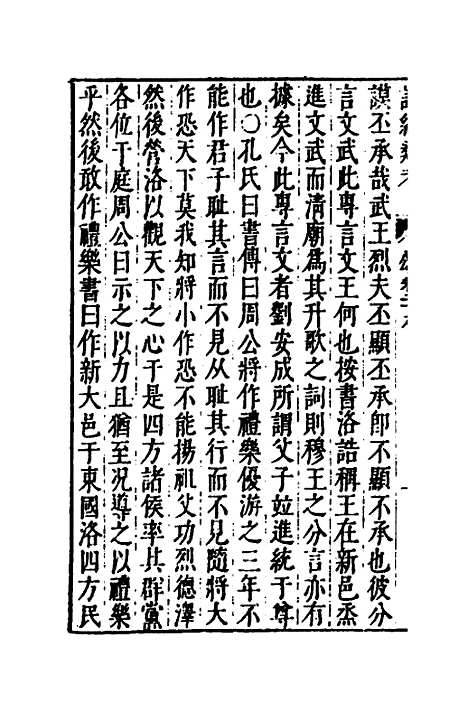 謨丕承哉武王烈夫丕顯丕承卽不顯不承也彼分
言文武此專言文王何也按書洛誥稱王在新邑烝
進文武而清廟爲其升歌之詞則穆王之分言亦有
據矣今此專言文者劉安成所謂父子竝進統于尊
也○孔氏曰書傳曰周公將作禮樂優游之三年不
能作君子耻其言而不見从耻其行而不見隨將大
作恐天下莫我知將小作恐不能揚祖父功烈德澤
然後營洛以觀天下之心于是四方諸侯率其群黨
各位于庭周公曰示之以力且猶至况導之以禮樂
乎然後敢作禮樂書曰作新大邑于東國洛四方民